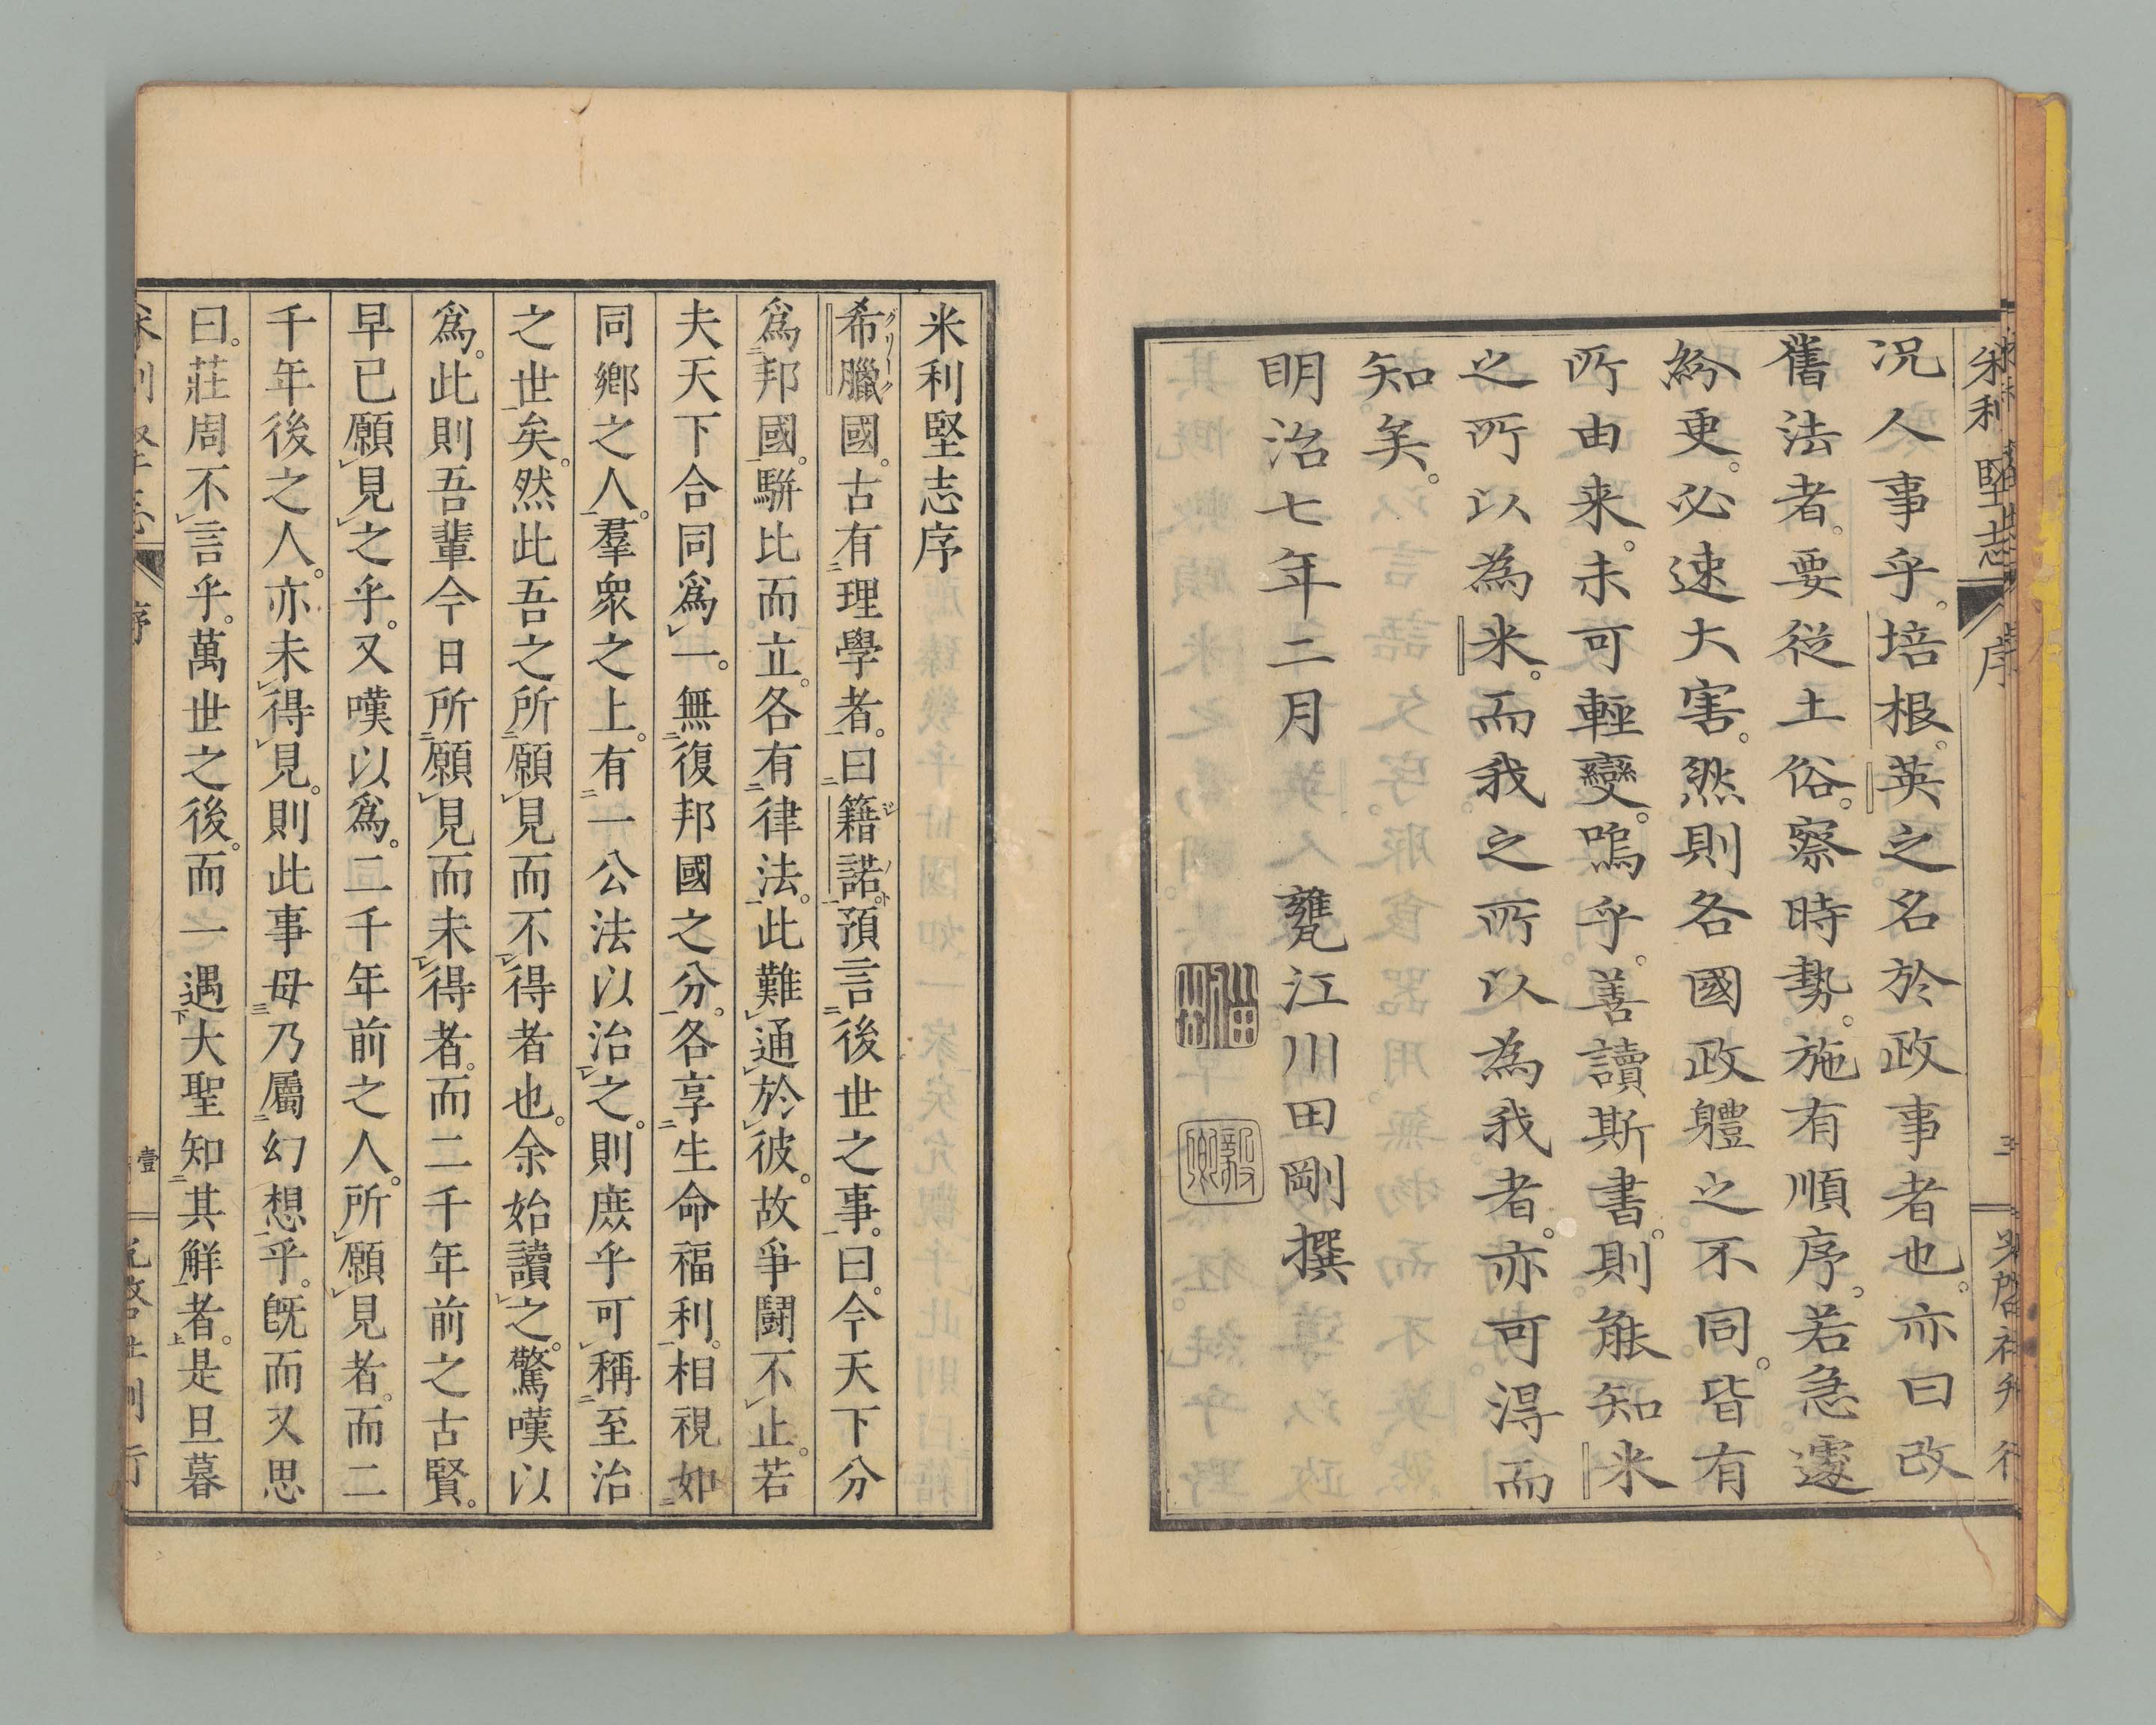 米利堅志
序
三
況人事乎。培根。英之名於政事者也。亦曰改
舊法者。要從土俗。察時勢。施有順序。若急遽
紛更。必速大害。然則各國政體之不同。皆有
所由来。未可輕變。嗚乎。善讀斯書。則能知米
之所以為米。而我之所以為我者。亦可得而
知矣。
明治七年二月　甕江川田剛撰
米利堅志序
希臘國。古有理學者。曰籍諾。預言後世之事。曰。今天下分
グリーク
ジノト
爲邦國。駢比而立。各有律法。此難通於彼。故爭鬪不止。若
夫天下合同爲一。無復邦國之分。各享生命福利。相視如
同鄉之人。羣衆之上。有一公法以治之。則庶乎可稱至治
之世矣。然此吾之所願見而不得者也。余始讀之。驚嘆以
爲。此則吾輩今日所願見而未得者。而二千年前之古賢。
早已願見之乎。又嘆以爲。二千年前之人。所願見者。而二
千年後之人。亦未得見。則此事毋乃屬幻想乎。旣而又思
曰。莊周不言乎。萬世之後。而一遇大聖知其解者。是旦暮
序
壹